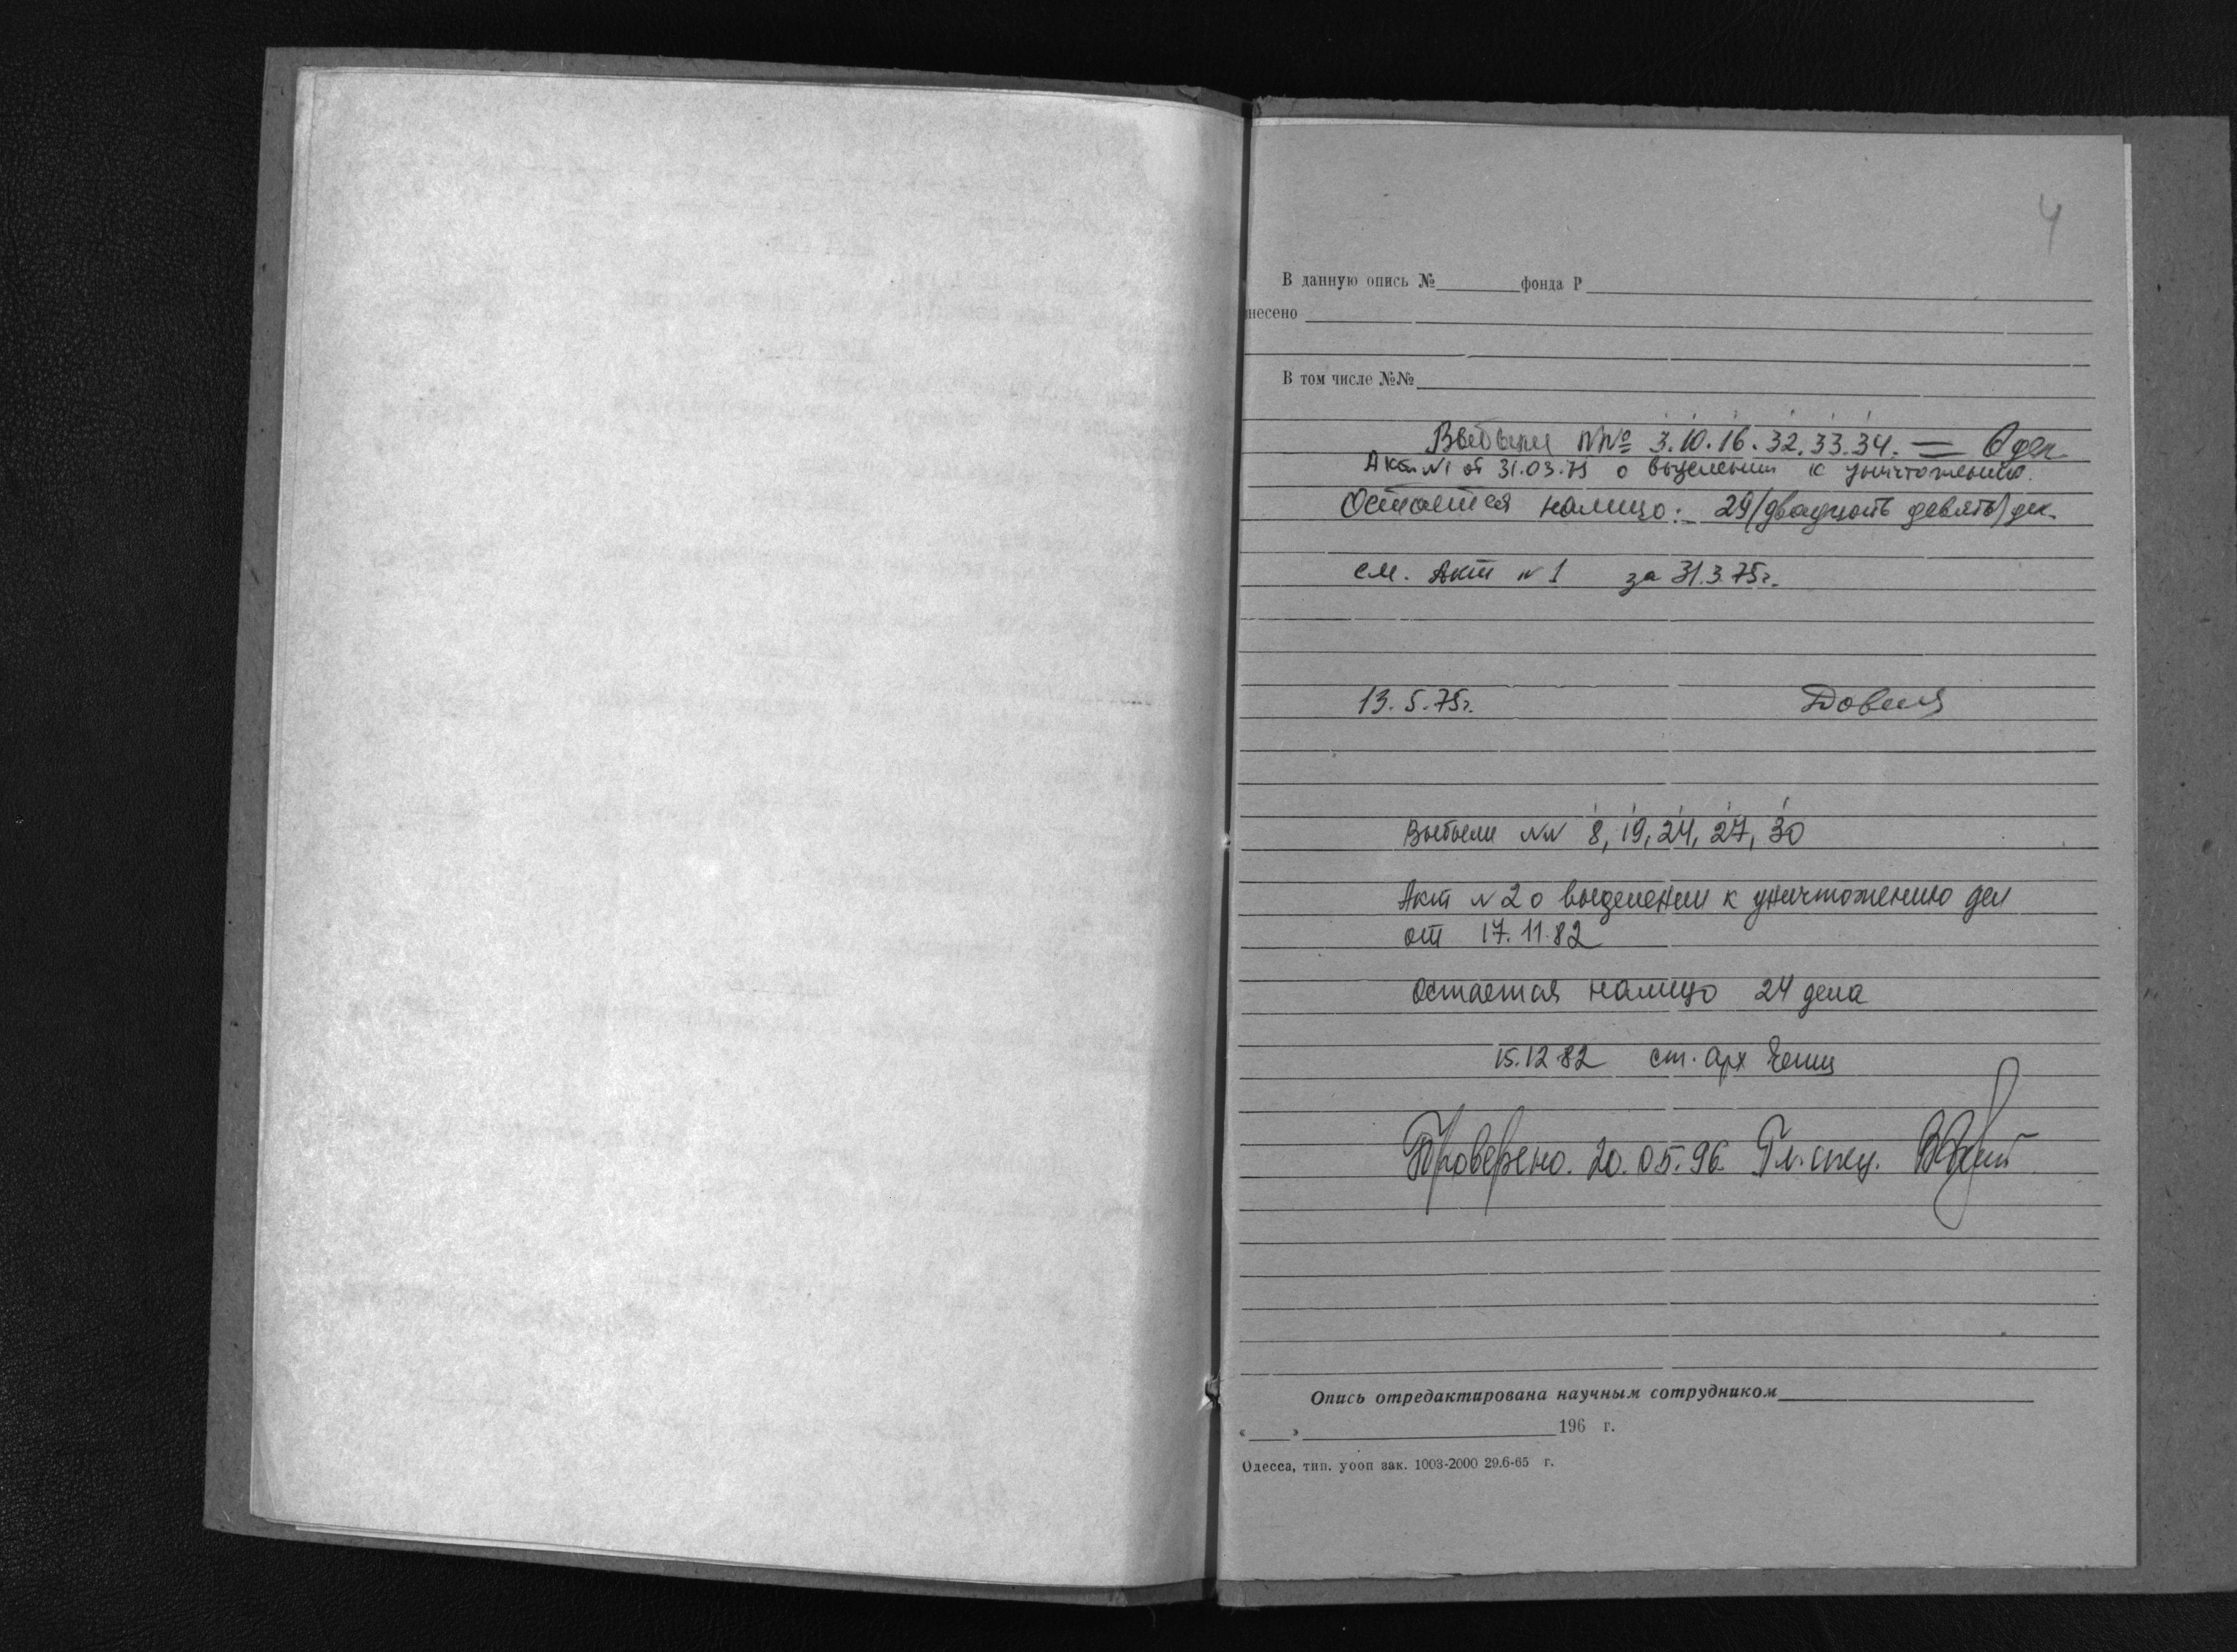 4
В данную опись № фонда Р
несено
В том числе №№
Выбыли №№ 3.10.16.32.33.34. — 6 дел.
Акт №1 от 31.03.75 о выделении к уничтожению.
Остается налицо: 29 (двадцать девять) дел.
см. Акт №1 за 31.3.75г.
13.5.75г.
Выбыли №№ 8, 19, 24, 27, 30
Акт №2 о выделении к уничтожению дел
от 17.11.82
Остается налицо 24 дела
15.12.82 ст. арх
Проверено. 20.05.96. Гл. спец.
Опись отредактирована научным сотрудником
« » 196 г.
Одесса, тип. уооп зак. 1003-2000 29.6-65 г.